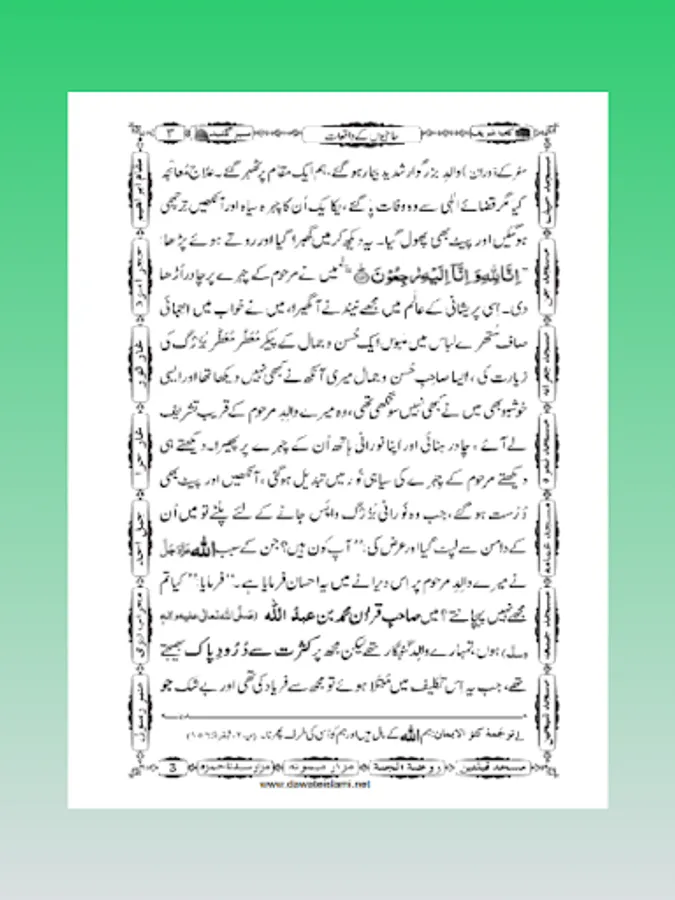 کعبہ شریف حاجیوں کے واقعات سبز گنبد ۳
سفر کے دوران) والدِ بزرگوار شدید بیمار ہو گئے، ہم ایک مقام پر ٹھہر گئے۔ علاج مُعالَجہ
کیا مگر قضائے الٰہی سے وہ وفات پا گئے، یکایک اُن کا چہرہ سیاہ اور آنکھیں تِرچھی
ہو گئیں اور پیٹ بھی پھول گیا۔ یہ دیکھ کر میں گھبرا گیا اور روتے ہوئے پڑھا:
"اِنَّا لِلّٰهِ وَ اِنَّاۤ اِلَیْهِ رٰجِعُوْنَ" میں نے مرحوم کے چہرے پر چادر اُڑھا
دی۔ اِسی پریشانی کے عالَم میں مجھے نیند نے آ گھیرا، میں نے خواب میں انتہائی
صاف سُتھرے لباس میں مَلبوس ایک حُسن و جمال کے پیکر مُعَطَّر مُعَطَّر بُزُرگ کی
زیارت کی، ایسا صاحبِ حُسن و جمال میری آنکھ نے کبھی نہیں دیکھا تھا اور ایسی
خوشبو بھی میں نے کبھی نہیں سونگھی تھی، وہ میرے والدِ مرحوم کے قریب تشریف
لے آئے، چادر ہٹائی اور اپنا نورانی ہاتھ اُن کے چہرے پر پھیرا۔ دیکھتے ہی
دیکھتے مرحوم کے چہرے کی سیاہی نُور میں تبدیل ہو گئی، آنکھیں اور پیٹ بھی
دُرُست ہو گئے، جب وہ نُورانی بُزُرگ واپس جانے کے لئے پلٹے تو میں اُن
کے دامن سے لپٹ گیا اور عرض کی: "آپ کون ہیں؟ جن کے سبب اللہ عَزَّوَجَلَّ
نے میرے والدِ مرحوم پر اس ویرانے میں یہ احسان فرمایا ہے۔" فرمایا: "کیا تم
مجھے نہیں پہچانتے؟ میں صاحبِ قراٰن محمد بن عبدُ اللہ (صَلَّی اللہ تعالٰی علیہ واٰلہٖ
وسلَّم) ہوں، تمہارے والد گنہگار تھے لیکن مجھ پر کثرت سے دُرُودِ پاک بھیجتے
تھے، جب یہ اُس تکلیف میں مُبتَلا ہوئے تو مجھ سے فریاد کی تھی اور بے شک جو
۱ ترجَمۂ کنز الایمان: ہم اللہ کے مال ہیں اور ہم کو اُسی کی طرف پھرنا۔ (پ۲، البقرۃ: ۱۵۶)
مسجد قبلتین روضة الجنة مزار میمونہ مزار سیدنا حمزہ 3
www.dawateislami.net